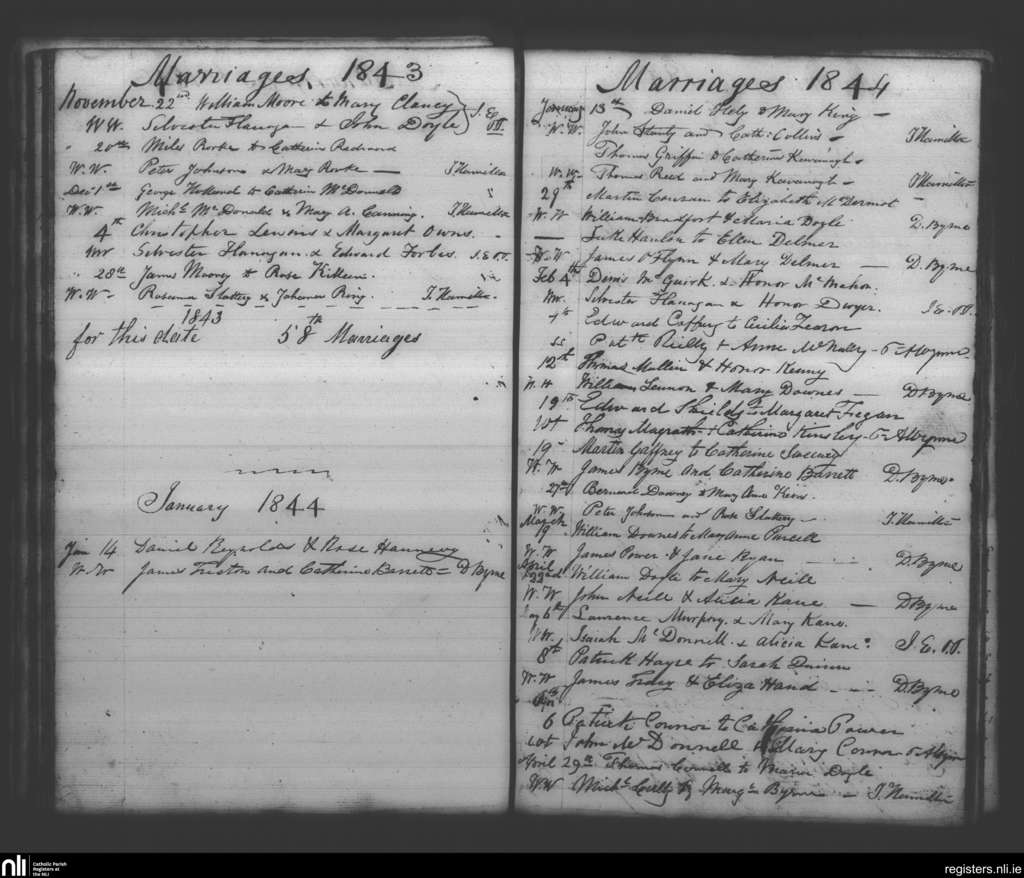 Marriages 1843
November 22nd William Moore to Mary Clancy
W W. Silvester Flanagan & John Doyle J. E. PP.
" 20th Miles Rorke to Catherin Redmond
W. W. Peter Johnson & Mary Rorke — J Hamilton
Dec 1st George Holland to Catherin McDonnald
W. W. Michl. McDonald & Mary A. Canning. J Hamilton
4th Christopher Lewins & Margaret Owns.
Silvester Flanagan & Edward Forbes. J. E. PP.
" 28th James Mooney to Rose
W. W— Slattery & Johanna Ring. J. Hamilton.
1843
for this date 58th Marriages
January 1844
Jan 14 Daniel Reynolds & Rose
W. W James and Catherine Barrett — D Byrne
Marriages 1844
January 13th Daniel Kely & Mary King —
W. W. John and Cath: Collins — J Hamilton
Thomas Griffin & Catherine Kavanagh.
W. W. Thomas Reed and Mary Kavanagh — J Hamilton
29th Martin to Elizabeth McDermot
W. W William Bradfort & Maria Doyle D. Byrne
— Luke Hanlon to Ellen Delmer
W. W James O'Flynn & Mary Delmer — D. Byrne
Feb 4th Denis McGuirk. & Honor McMahon.
Silvester Flanagan & Honor Dwyer. J. E. PP.
4th Edward Caffery to Cecilia
Patk Reilly & Anne McNally —
12th Thomas Mullin & Honor Kenny
W. W William Lennon & Mary Downes — D Byrne
19th Edward Shields to Margaret Fegan
Wt Thomas Magrath & Catherine Kinsley
19— Martin Gaffney to Catherine Sweeney
W. W James Byrne and Catherine Barrett D. Byrne
27th Bernard Downey & Mary Anne
W. W. Peter Johnson and Rose Slattery — J. Hamilton
March 19— William Downes to Mary Anne Purcell
W. W James Power & Jane Ryan — D. Byrne
April 22nd William Doyle to Mary Neill
W. W. John Neill & Alicia Kane — D Byrne
6th Laurence Murphy. & Mary Kane.
W. Isaiah McDonnell. & Alicia Kane. J. E. PP.
8th Patrick Hayse to Sarah Quinn
W. W James & Eliza Hand — D. Byrne
6 Patrick Connor to Power
Wt John McDonnell & Mary Connor
April 29th Thomas to Maria Doyle
W. W Michl. & Margt. Byrne — J. Hamilton
nli Catholic Parish Registers at the NLI
registers.nli.ie